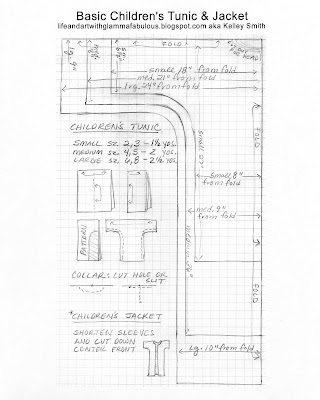 Basic Children's Tunic & Jacket
lifeandartwithglammafabulous.blogspot.com aka Kelley Smith
FOLD
small, 18" from fold
med. 21" from fold
lrg. 24" from fold
CHILDREN'S TUNIC
SMALL SZ. 2,3 - 1½ YDS.
MEDIUM SZ. 4,5 - 2 YDS.
LARGE SZ. 6,8 - 2½ YDS.
FOLD
small, 8"
from fold
med. 9"
from fold
PATTERN
COLLAR: CUT HOLE OR
SLIT
*CHILDREN'S JACKET
SHORTEN SLEEVES
AND CUT DOWN
CENTER FRONT
FOLD
Lg. 10" from fold